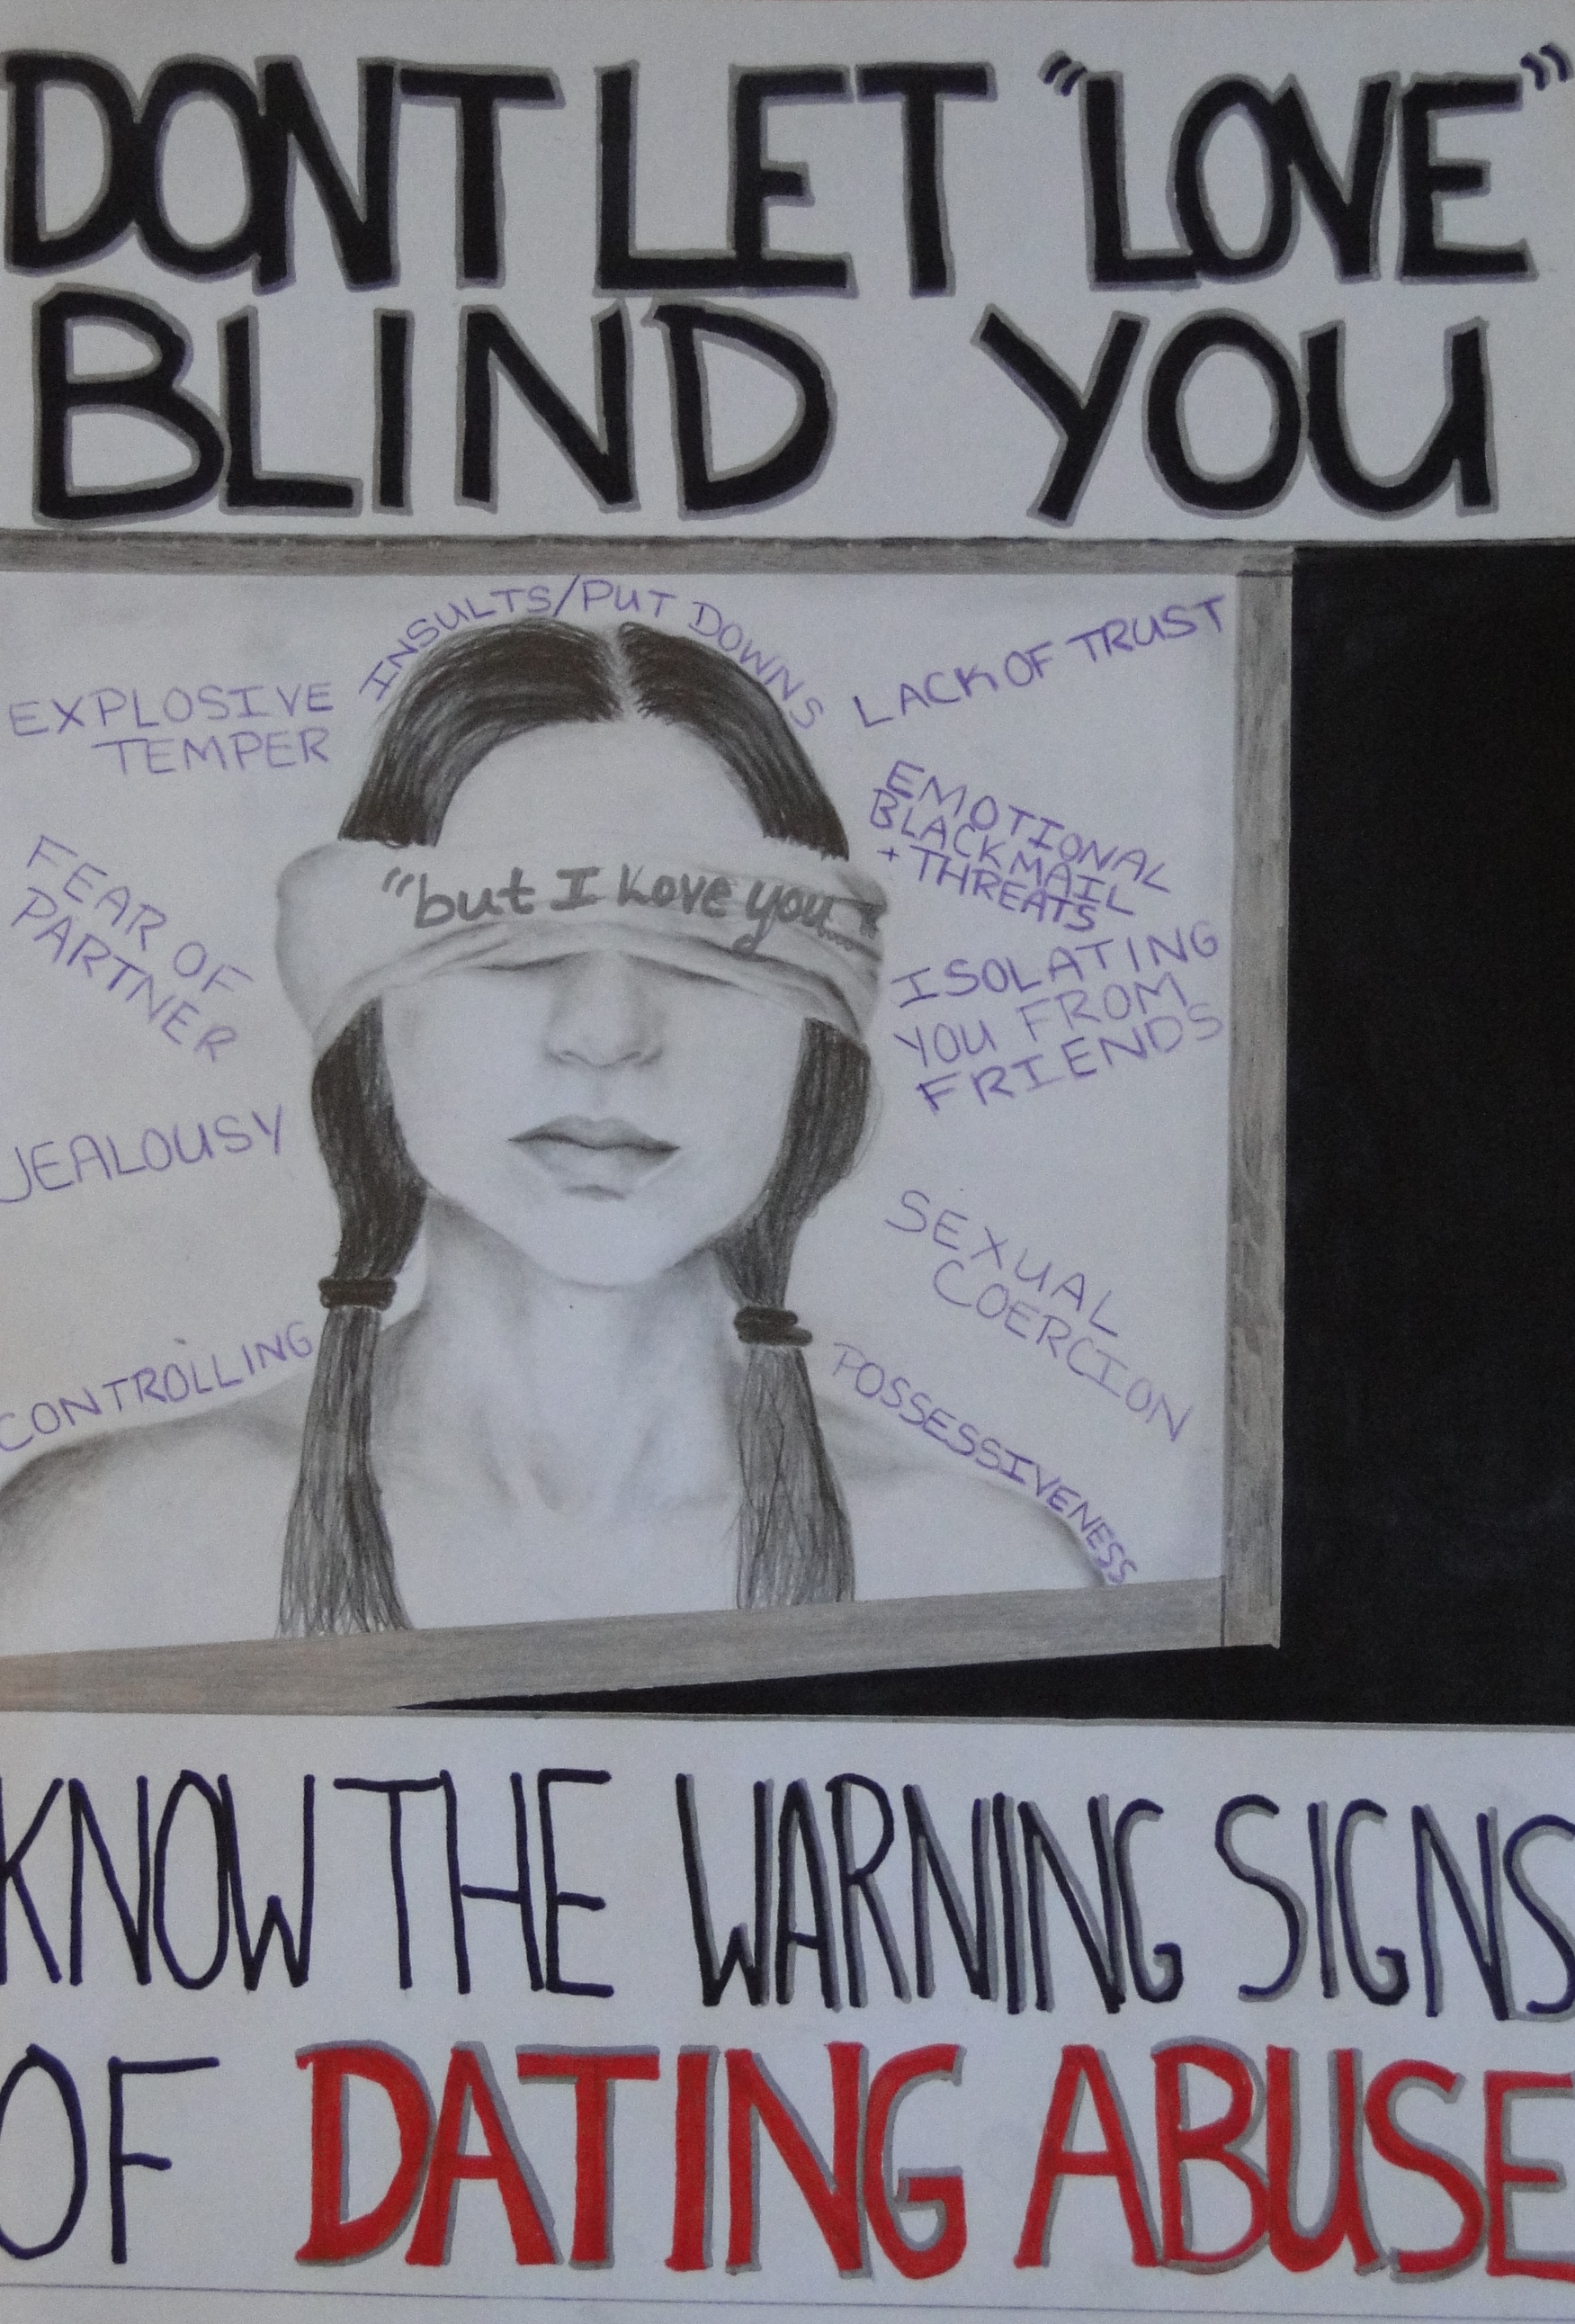 DONT LET "LOVE"
BLIND YOU
INSULTS/PUT DOWNS
EXPLOSIVE
TEMPER
LACK OF TRUST
FEAR OF
PARTNER
EMOTIONAL
BLACKMAIL
+ THREATS
"but I love you..."
ISOLATING
YOU FROM
FRIENDS
JEALOUSY
SEXUAL
COERCION
CONTROLLING
POSSESSIVENESS
KNOW THE WARNING SIGNS
OF DATING ABUSE